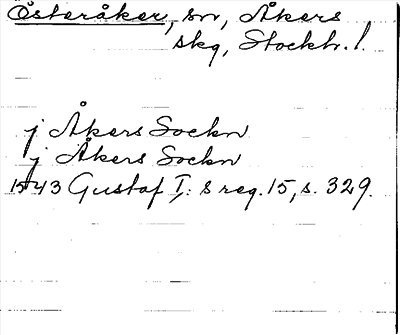 Österåker, sn, Åkers
skg, Stockh. l.
j Åkers Sockn
j Åkers Sockn
1543 Gustaf I: s reg. 15, s. 329.